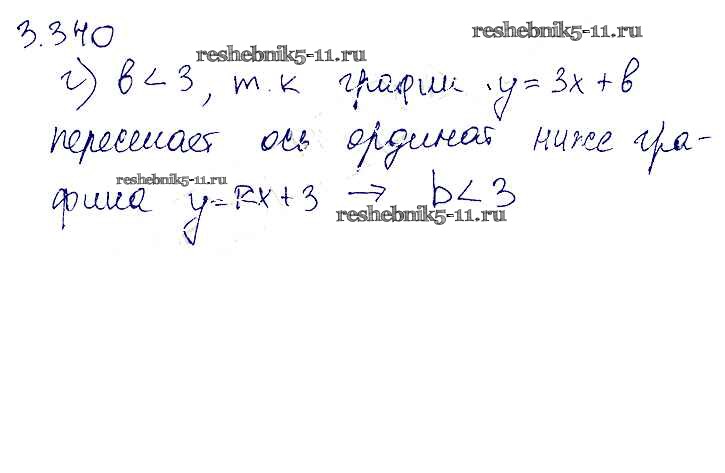 3.340
reshebnik5-11.ru
reshebnik5-11.ru
г) b < 3, т.к график y = 3x + b
пересекает ось ординат ниже гра-
reshebnik5-11.ru
фика y = kx + 3 → b < 3
reshebnik5-11.ru